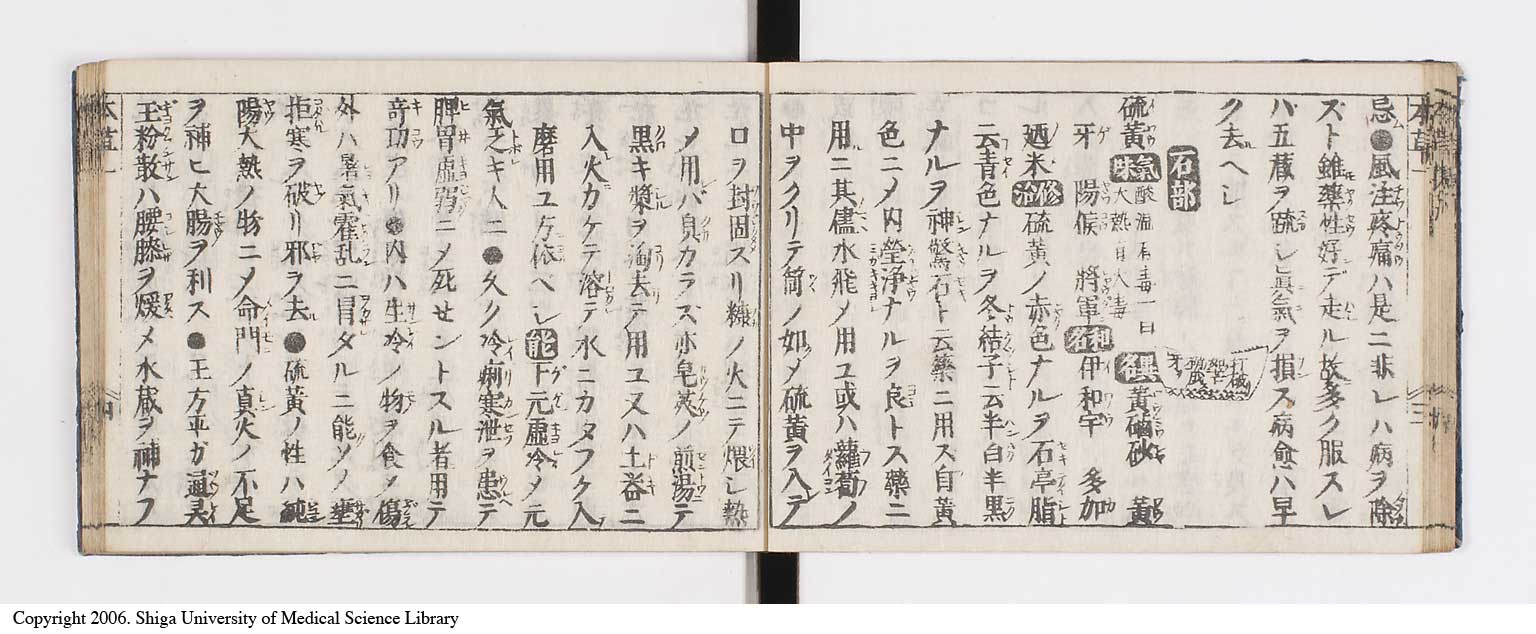 忌●風注疼痛ハ是ニ非レハ病ヲ除
スト雖藥性好デ走ル故多ク服スレ
ハ五蔵ヲ䟽シ眞氣ヲ損ス病愈ハ早
ク去ヘシ
石部
硫黄 氣味 酸温有毒一曰大熱有大毒 異名 黄硇砂 黄
牙 陽候 將軍 和名 伊和宇 多加
廼米 修治 硫黄ノ赤色ナルヲ石亭脂
云青色ナルヲ冬結子云半白半黒
ナルヲ神驚石ト云藥ニ用ス自黄
色ニメ内瑩浄ナルヲ良トス藥ニ
用ニ其儘水飛メ用ユ或ハ蘿蔔ノ
中ヲクリテ筒ノ如メ硫黄ヲ入テ
口ヲ封固スリ糠ノ火ニテ煨シ熱
メ用バ臭カラス亦皂莢ノ煎湯テ
黒キ漿ヲ淘去テ用ユ又ハ土器ニ
入火カケテ溶テ水ニカタフケ入
磨用ユ方依ヘシ 能 下元虚冷メ元
氣乏キ人ニ●久ク冷痢寒泄ヲ患テ
脾胃虚弱ニメ死セントスル者用テ
竒功アリ●内ハ生冷ノ物ヲ食メ傷
外ハ暑氣霍乱ニ冒タルニ能ソノ壅
拒寒ヲ破リ邪ヲ去●硫黄ノ性ハ純
陽大熱ノ物ニメ命門ノ真火ノ不足
ヲ補ヒ大腸ヲ利ス●王方平ガ通灵
玉粉散ハ腰膝ヲ煖メ水蔵ヲ補ナフ
本草一
Copyright 2006. Shiga University of Medical Science Library